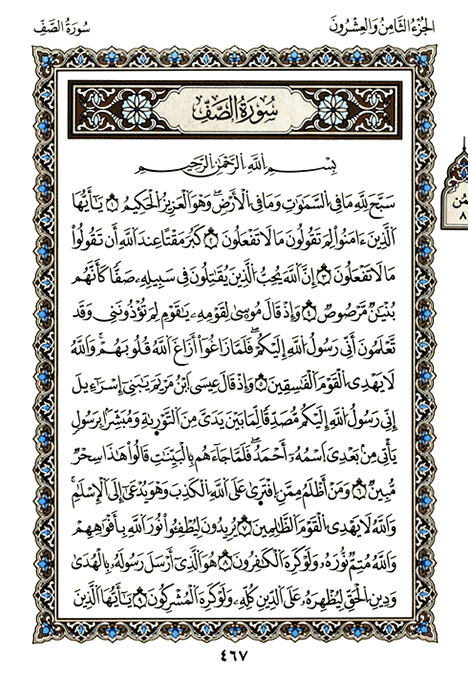 الجزء الثامن والعشرون
سورة الصف
سورة الصف
بسم الله الرحمن الرحيم
سَبَّحَ لِلَّهِ مَا فِي السَّمَٰوَٰتِ وَمَا فِي الْأَرْضِۖ وَهُوَ الْعَزِيزُ الْحَكِيمُ ١ يَٰٓأَيُّهَا
الَّذِينَ ءَامَنُوا۟ لِمَ تَقُولُونَ مَا لَا تَفْعَلُونَ ٢ كَبُرَ مَقْتًا عِندَ اللَّهِ أَن تَقُولُوا۟
مَا لَا تَفْعَلُونَ ٣ إِنَّ اللَّهَ يُحِبُّ الَّذِينَ يُقَٰتِلُونَ فِي سَبِيلِهِۦ صَفًّا كَأَنَّهُم
بُنْيَٰنٌ مَّرْصُوصٌ ٤ وَإِذْ قَالَ مُوسَىٰ لِقَوْمِهِۦ يَٰقَوْمِ لِمَ تُؤْذُونَنِي وَقَد
تَّعْلَمُونَ أَنِّي رَسُولُ اللَّهِ إِلَيْكُمْۖ فَلَمَّا زَاغُوٓا۟ أَزَاغَ اللَّهُ قُلُوبَهُمْۚ وَاللَّهُ
لَا يَهْدِي الْقَوْمَ الْفَٰسِقِينَ ٥ وَإِذْ قَالَ عِيسَى ابْنُ مَرْيَمَ يَٰبَنِيٓ إِسْرَٰٓءِيلَ
إِنِّي رَسُولُ اللَّهِ إِلَيْكُم مُّصَدِّقًا لِّمَا بَيْنَ يَدَيَّ مِنَ التَّوْرَىٰةِ وَمُبَشِّرًۢا بِرَسُولٍ
يَأْتِي مِنۢ بَعْدِي اسْمُهُۥٓ أَحْمَدُۖ فَلَمَّا جَآءَهُم بِالْبَيِّنَٰتِ قَالُوا۟ هَٰذَا سِحْرٌ
مُّبِينٌ ٦ وَمَنْ أَظْلَمُ مِمَّنِ افْتَرَىٰ عَلَى اللَّهِ الْكَذِبَ وَهُوَ يُدْعَىٰٓ إِلَى الْإِسْلَٰمِۚ
وَاللَّهُ لَا يَهْدِي الْقَوْمَ الظَّٰلِمِينَ ٧ يُرِيدُونَ لِيُطْفِـُٔوا۟ نُورَ اللَّهِ بِأَفْوَٰهِهِمْ
وَاللَّهُ مُتِمُّ نُورِهِۦ وَلَوْ كَرِهَ الْكَٰفِرُونَ ٨ هُوَ الَّذِيٓ أَرْسَلَ رَسُولَهُۥ بِالْهُدَىٰ
وَدِينِ الْحَقِّ لِيُظْهِرَهُۥ عَلَى الدِّينِ كُلِّهِۦ وَلَوْ كَرِهَ الْمُشْرِكُونَ ٩ يَٰٓأَيُّهَا الَّذِينَ
٤٦٧